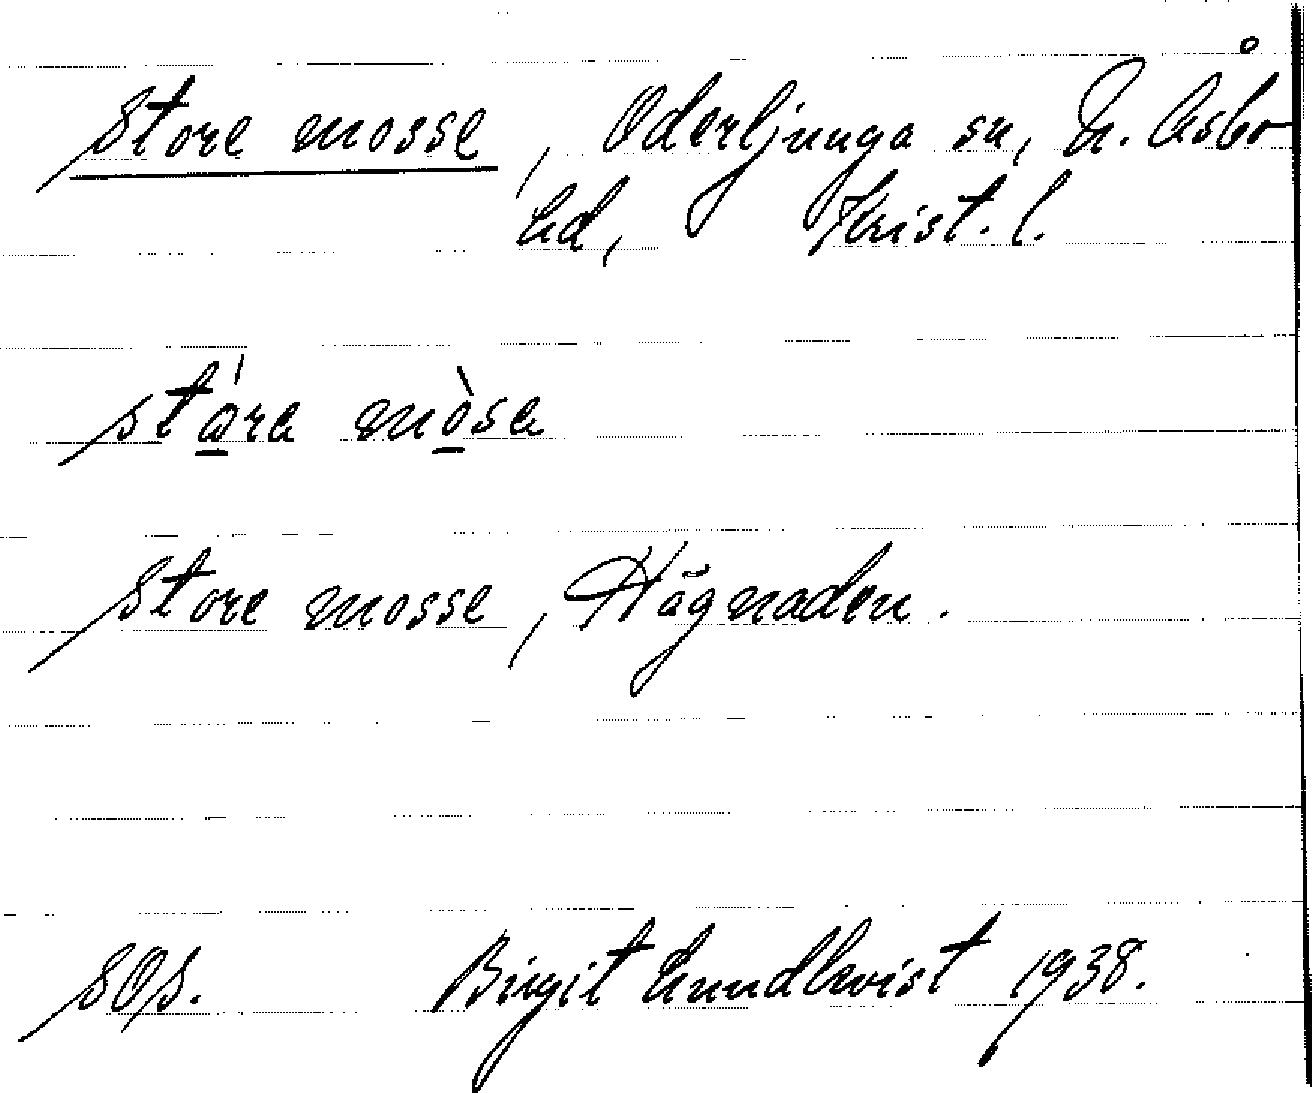 Store mosse, Oderljunga sn, N. Åsbo
hd, Krist. l.
stǻra mòsa
Store mosse, Hägnaden.
SOS. Birgit Lundkvist 1938.